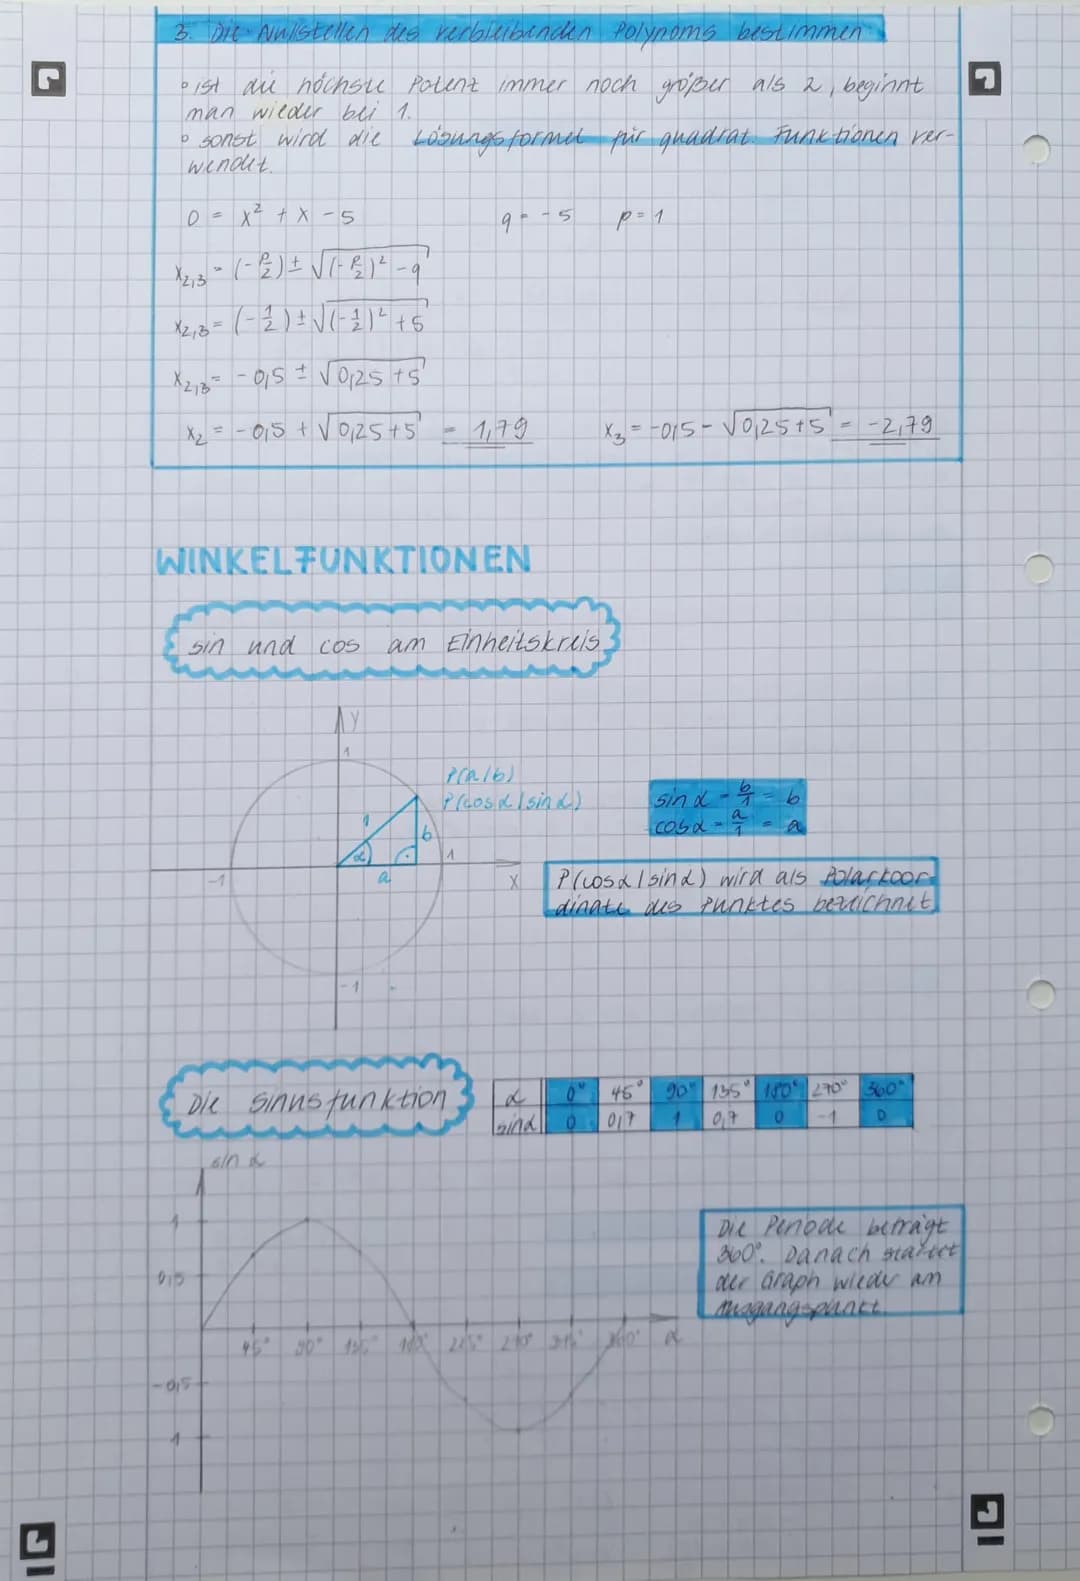 3. Die Nullstellen des verbleibenden Polynoms bestimmen
◦ ist die höchste Potenz immer noch größer als 2, beginnt
man wieder bei 1.
◦ sonst wird die Lösungsformel für quadrat. Funktionen ver-
wendet.
0 = x² + x - 5 q = -5 p = 1
x₂,₃ = (-p/2) ± √((-p/2)² - q)
x₂,₃ = (-1/2) ± √((-1/2)² + 5)
x₂,₃ = -0,5 ± √(0,25 + 5)
x₂ = -0,5 + √(0,25 + 5) = 1,79 x₃ = -0,5 - √(0,25 + 5) = -2,79
WINKELFUNKTIONEN
sin und cos am Einheitskreis
y
1
P(a|b)
P(cos α | sin α)
sin α = b/1 = b
cos α = a/1 = a
1
b
α
1
-1
a
x
P(cos α | sin α) wird als Polarkoor-
dinate des Punktes bezeichnet
-1
Die Sinusfunktion
α 0° 45° 90° 135° 180° 270° 360°
sin α 0 0,7 1 0,7 0 -1 0
sin α
1
0,5
Die Periode beträgt
360°. Danach startet
der Graph wieder am
Ausgangspunkt.
45° 90° 135° 180° 225° 270° 315° 360° α
-0,5
-1